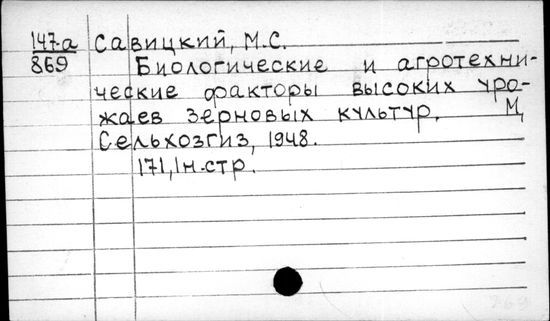 147-а Савицкий, М.С.
869 Биологические и агротехни-
ческие факторы высоких уро-
жаев зерновых культур. М,
Сельхозгиз, 1948.
171, 1н.стр.
269